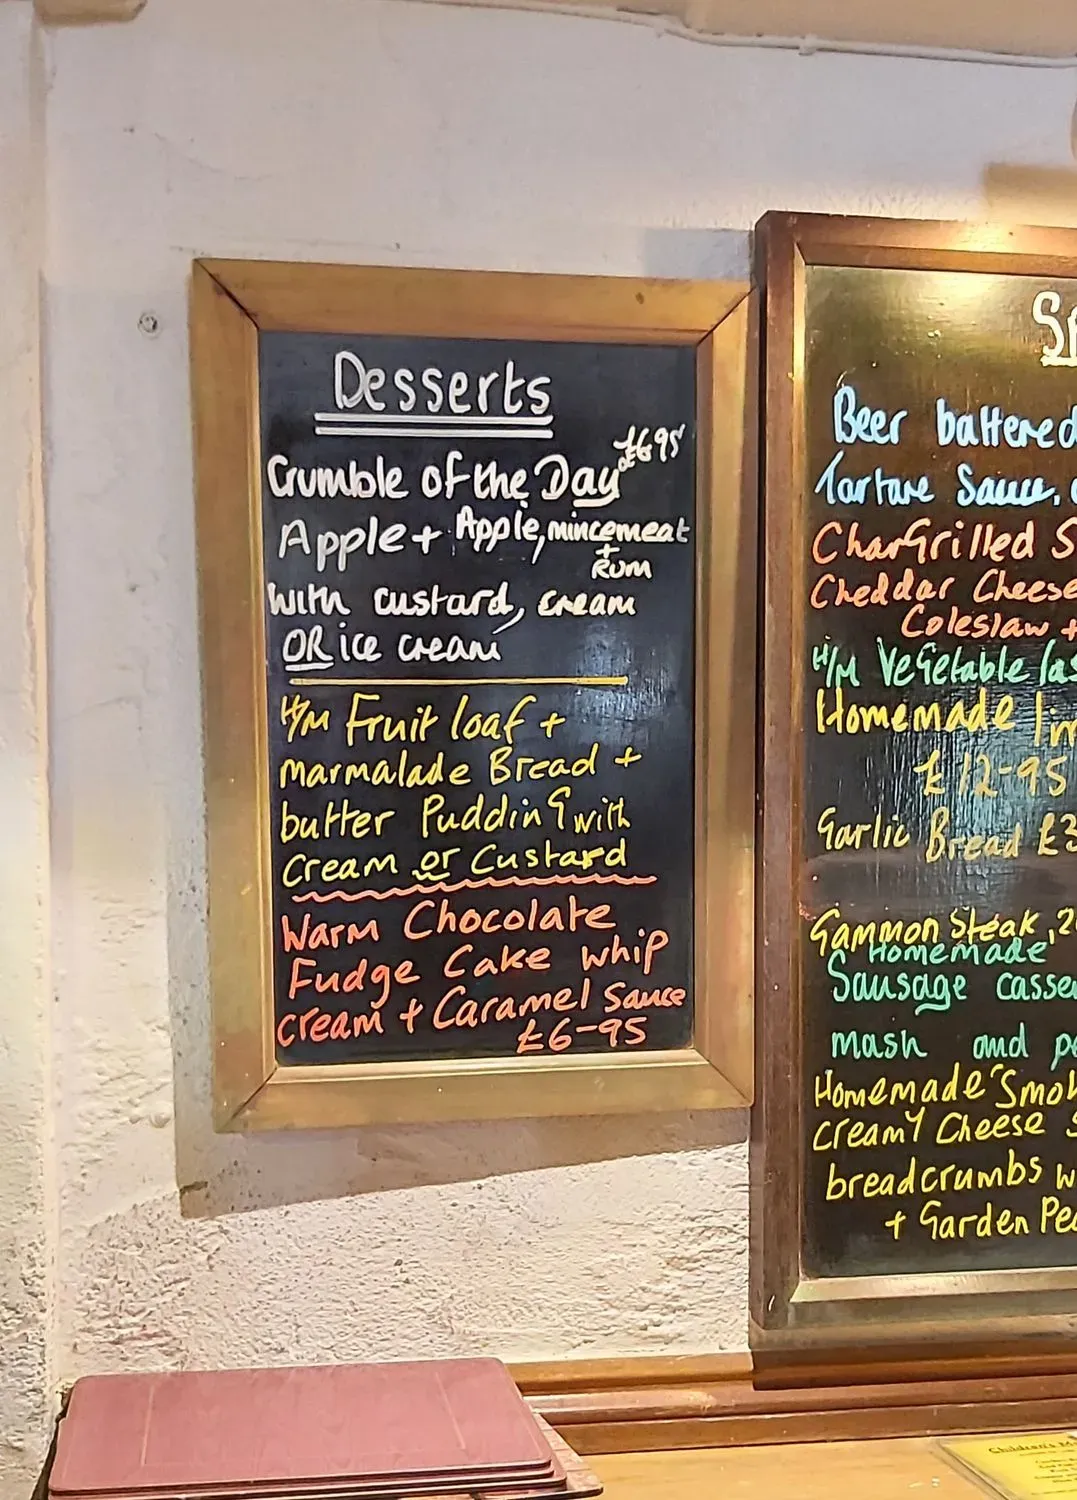 Desserts
£6-95
Crumble of the Day
Apple + Apple, mincemeat
+
Rum
With custard, cream
OR ice cream
H/M Fruit loaf +
marmalade Bread +
butter Pudding with
Cream or Custard
Warm Chocolate
Fudge Cake whip
cream + Caramel Sauce
£6-95
Beer battered
Tartare Sauce,
CharGrilled S
Cheddar Cheese
Coleslaw +
H/M Vegetable las
Homemade
£12-95
Garlic Bread £3
Gammon Steak, 2
Homemade
Sausage casse
mash and pe
Homemade "Smok
Creamy Cheese
breadcrumbs w
+ Garden Pea
Children's M